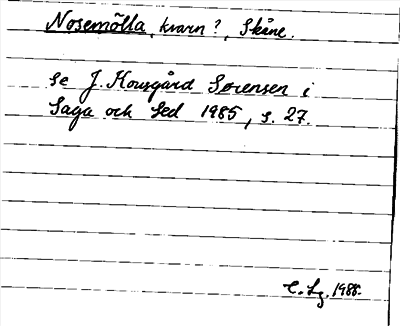 Nosemölla, kvarn?, Skåne.
se J. Kousgård Sørensen i
Saga och Sed 1985, s. 27.
C. Lg. 1988.